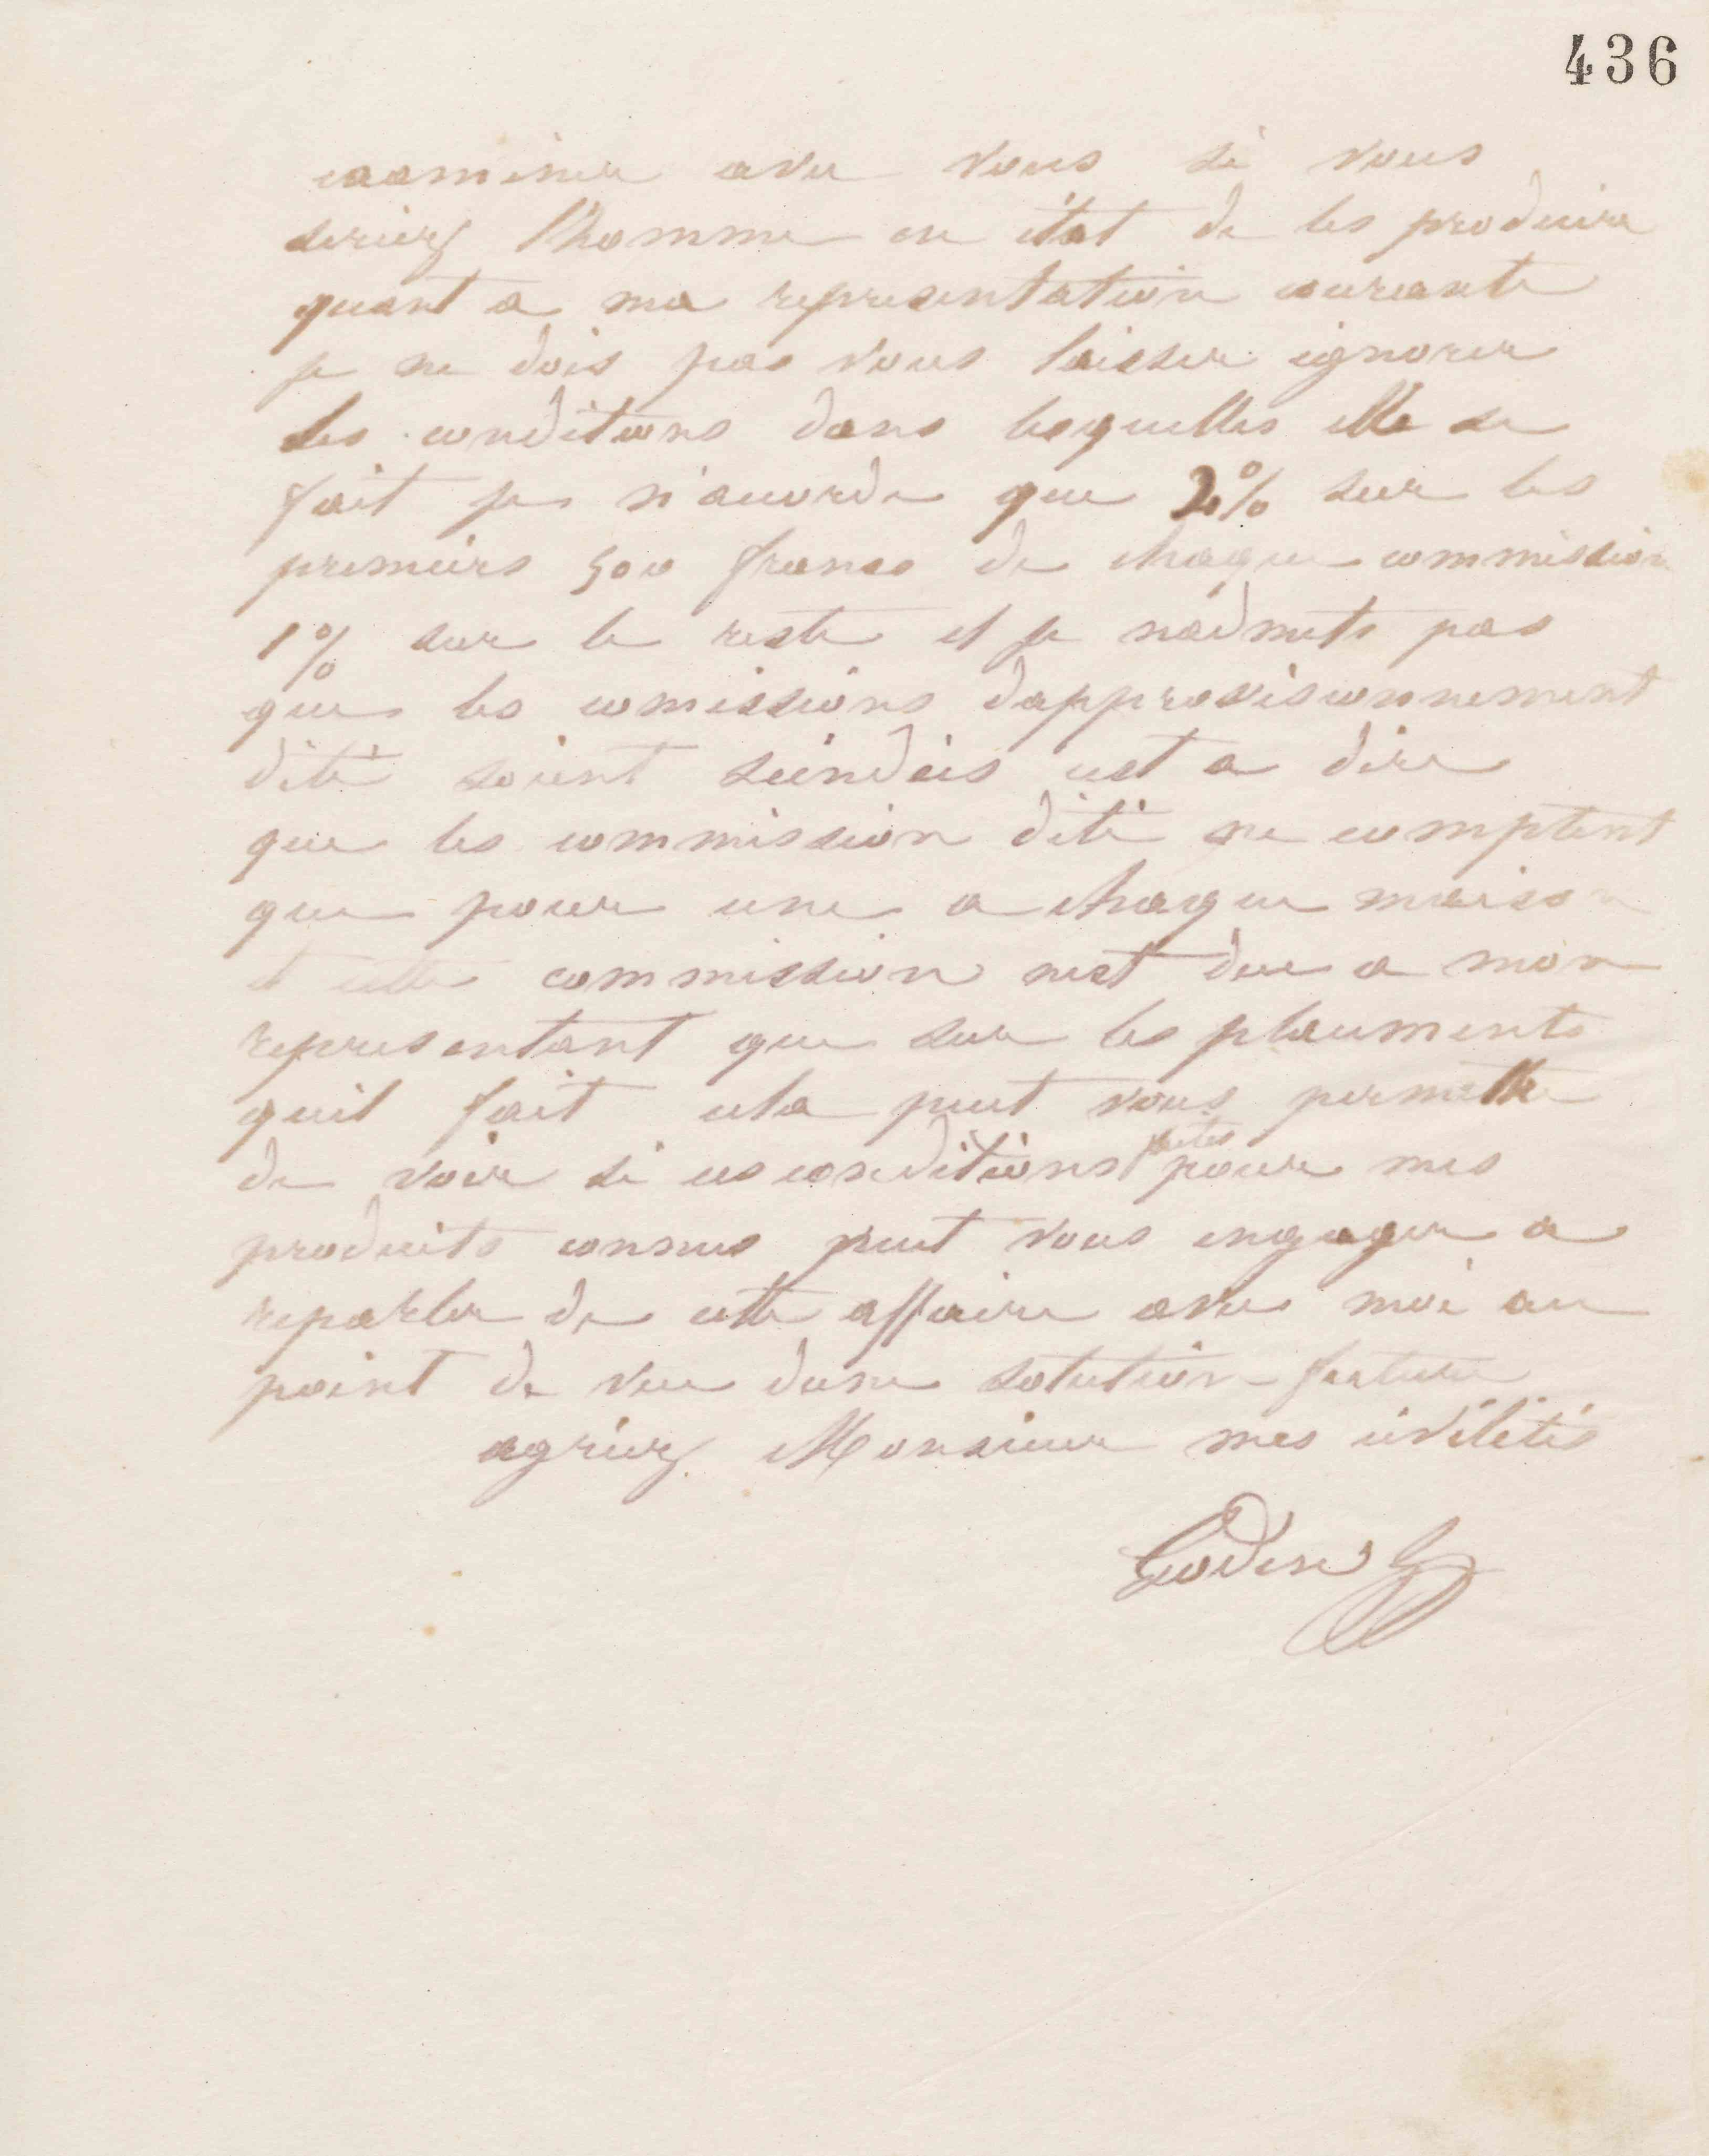 436
examiner avec vous si vous
seriez l'homme en état de les produire
quant a ma representation courante
je ne dois pas vous laisser ignorer
les conditions dans lesquelles elle se
fait je n'accorde que 2% sur les
premiers 500 francs de chaque commission
1% sur le reste et je n'admets pas
que les comissions dapprovisionnement
dété soient scindées cest a dire
que les commission dété ne comptent
que pour une a chaque maison
et cette commission nest due a mon
representant que sur les placements
quil fait cela peut vous permettre
de voir si ces conditions faites pour mes
produits connus peut vous engager a
reparler de cette affaire avec moi au
point de vue dune solution future
agréez Monsieur mes civilités
Godin